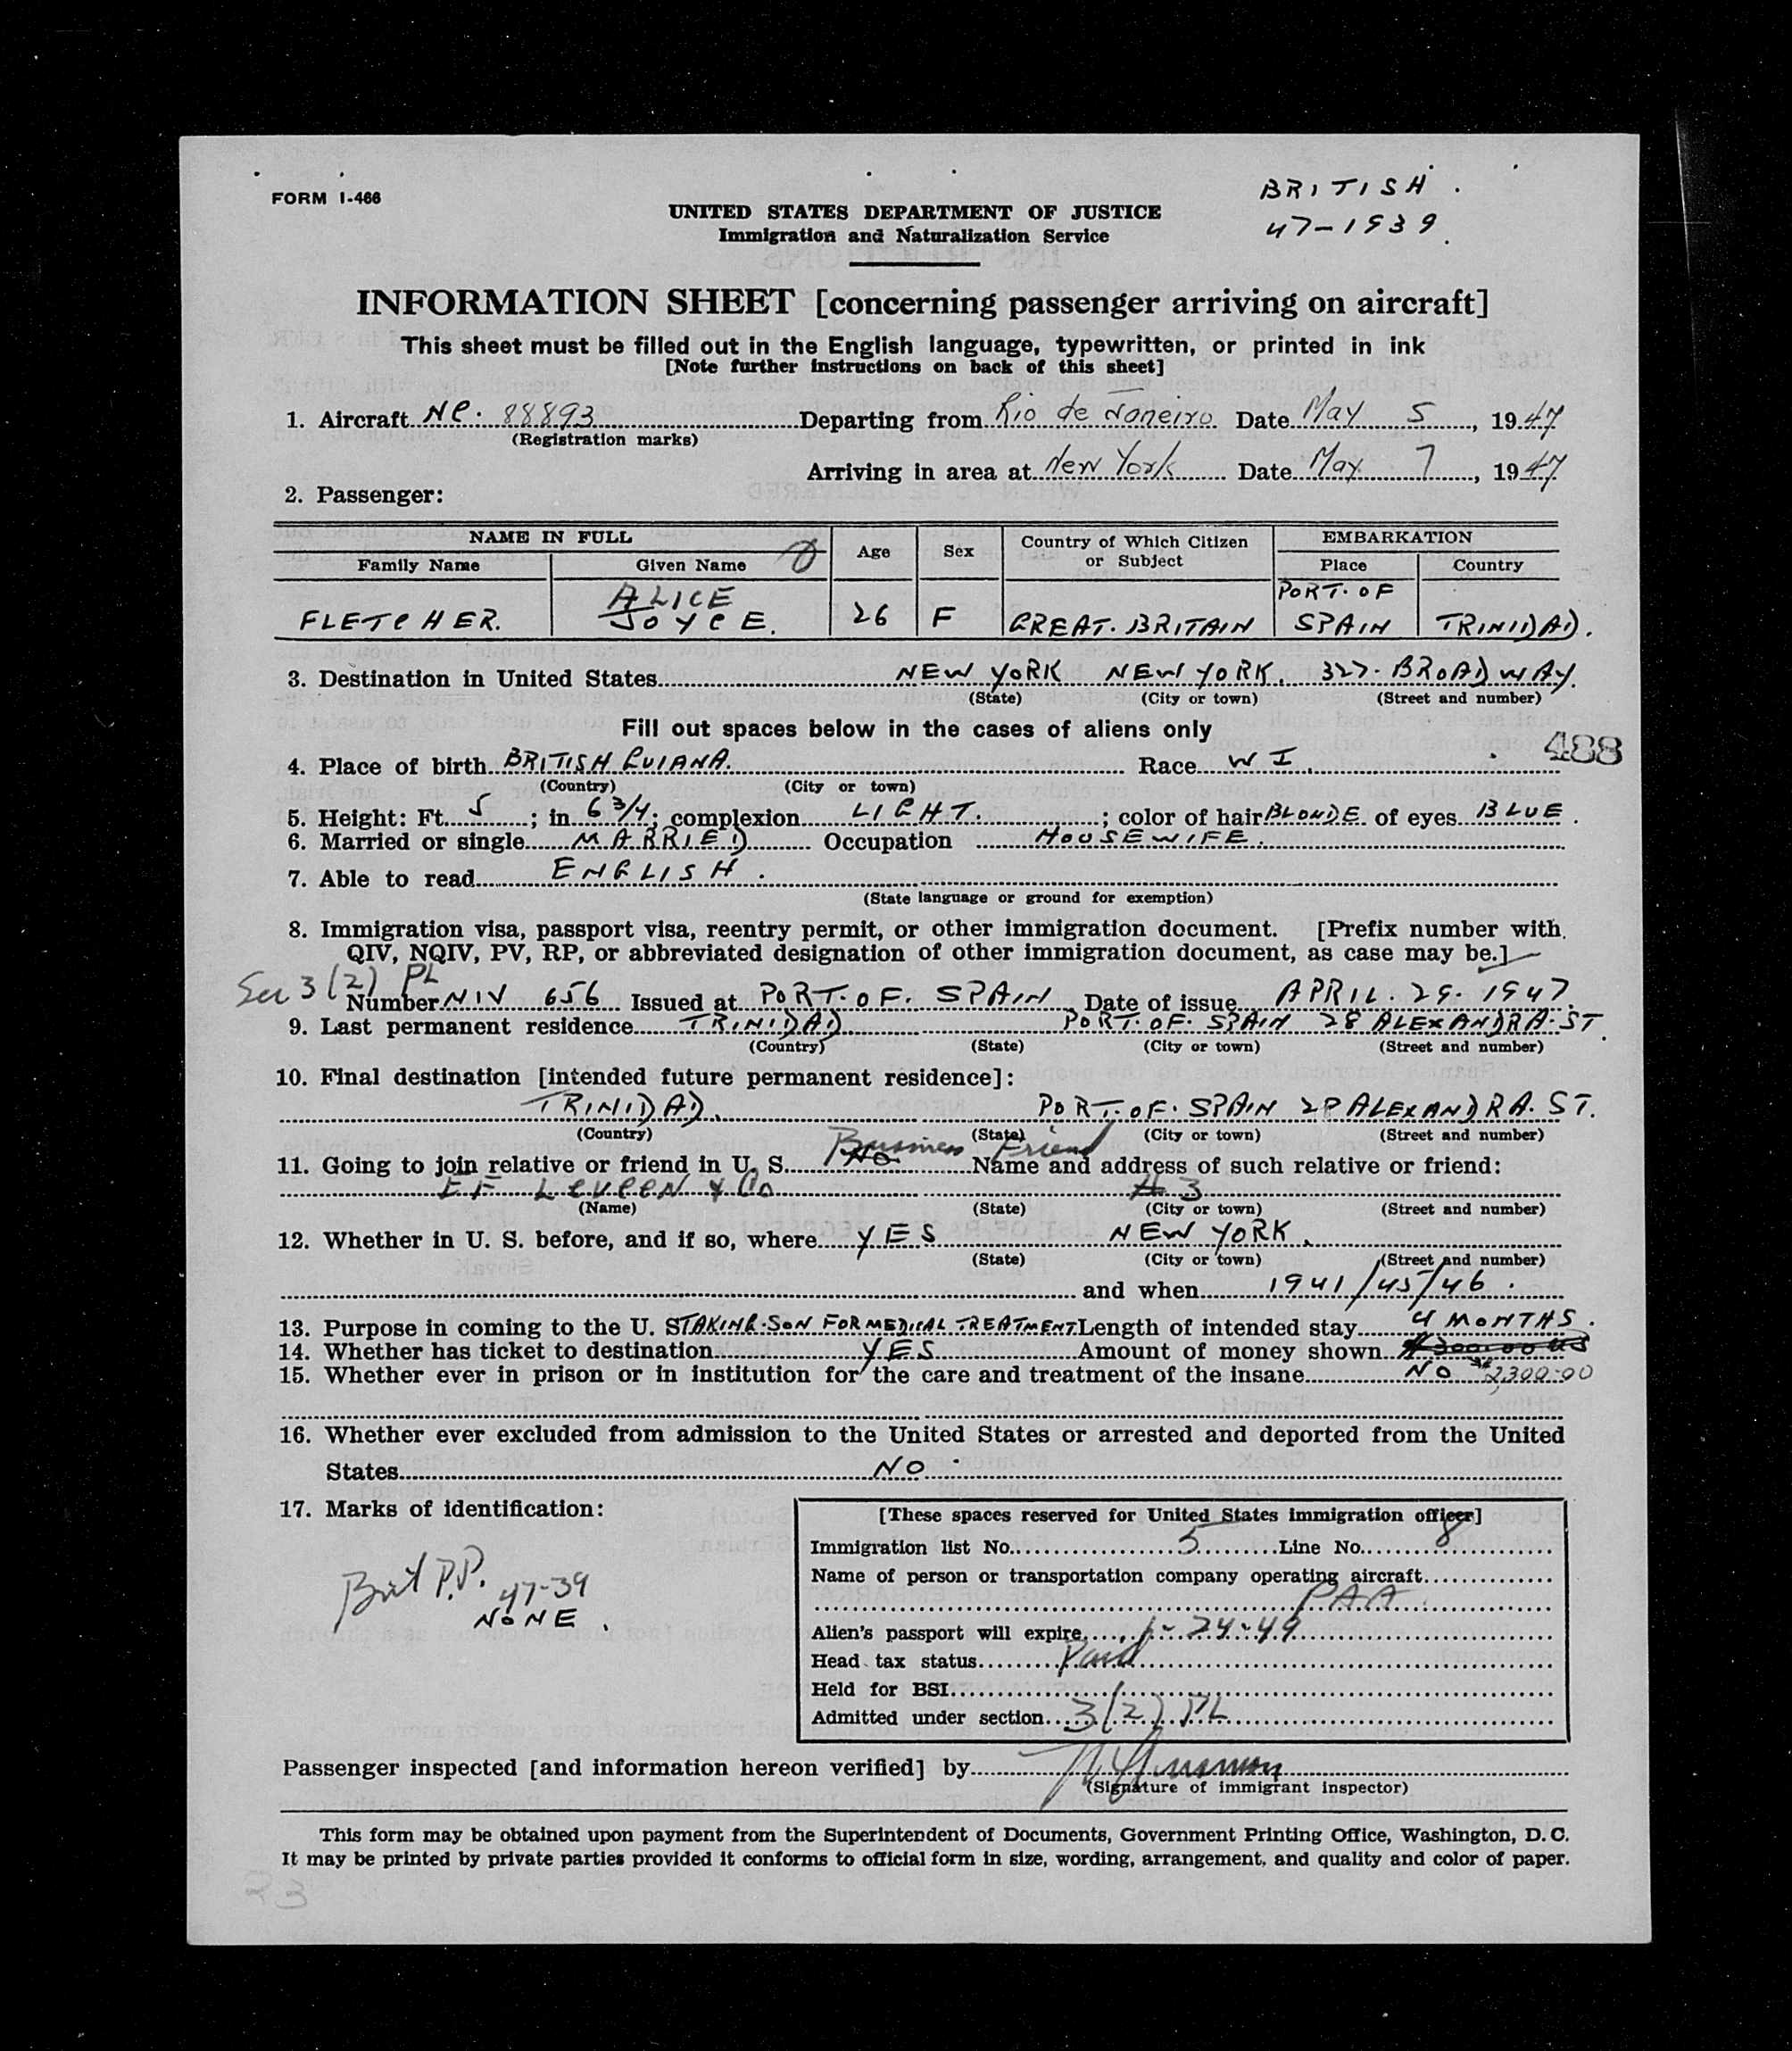 FORM I-466
BRITISH.
47-1939.
UNITED STATES DEPARTMENT OF JUSTICE
Immigration and Naturalization Service
INFORMATION SHEET [concerning passenger arriving on aircraft]
This sheet must be filled out in the English language, typewritten, or printed in ink
[Note further instructions on back of this sheet]
1. Aircraft NC. 88893 Departing from Rio de Janeiro Date May 5, 1947
(Registration marks)
Arriving in area at New York Date May 7, 1947
2. Passenger:
NAME IN FULL Age Sex Country of Which Citizen or Subject EMBARKATION
Family Name Given Name Place Country
FLETCHER. ALICE JOYCE. 26 F GREAT. BRITAIN PORT. OF SPAIN TRINIDAD.
3. Destination in United States NEW YORK NEW YORK. 327. BROADWAY.
(State) (City or town) (Street and number)
Fill out spaces below in the cases of aliens only
488
4. Place of birth BRITISH GUIANA. Race W I.
(Country) (City or town)
5. Height: Ft. 5; in 6 3/4; complexion LIGHT.; color of hair BLONDE of eyes BLUE.
6. Married or single MARRIED Occupation HOUSEWIFE.
7. Able to read ENGLISH.
(State language or ground for exemption)
8. Immigration visa, passport visa, reentry permit, or other immigration document. [Prefix number with
QIV, NQIV, PV, RP, or abbreviated designation of other immigration document, as case may be.]
Sec 3(2) PL
Number NIV 656 Issued at PORT. OF. SPAIN Date of issue APRIL. 29. 1947.
9. Last permanent residence TRINIDAD PORT. OF. SPAIN 28 ALEXANDRA. ST.
(Country) (State) (City or town) (Street and number)
10. Final destination [intended future permanent residence]:
TRINIDAD. PORT. OF. SPAIN 28 ALEXANDRA. ST.
(Country) (State) (City or town) (Street and number)
11. Going to join relative or friend in U. S. No Business Friend Name and address of such relative or friend:
EF Leveen & Co # 3
(Name) (State) (City or town) (Street and number)
12. Whether in U. S. before, and if so, where YES NEW YORK.
(State) (City or town) (Street and number)
and when 1941/45/46.
13. Purpose in coming to the U. S. TAKING. SON FOR MEDICAL TREATMENT Length of intended stay 4 MONTHS.
14. Whether has ticket to destination YES Amount of money shown $300.00 US
15. Whether ever in prison or in institution for the care and treatment of the insane NO $2,300.00
16. Whether ever excluded from admission to the United States or arrested and deported from the United
States NO
17. Marks of identification:
Brit P.P. 47-39
NONE.
[These spaces reserved for United States immigration officer]
Immigration list No. 5 Line No. 8
Name of person or transportation company operating aircraft
PAA
Alien's passport will expire 1-24-49
Head tax status Paid
Held for BSI
Admitted under section 3(2) PL
Passenger inspected [and information hereon verified] by
(Signature of immigrant inspector)
This form may be obtained upon payment from the Superintendent of Documents, Government Printing Office, Washington, D. C.
It may be printed by private parties provided it conforms to official form in size, wording, arrangement, and quality and color of paper.
23